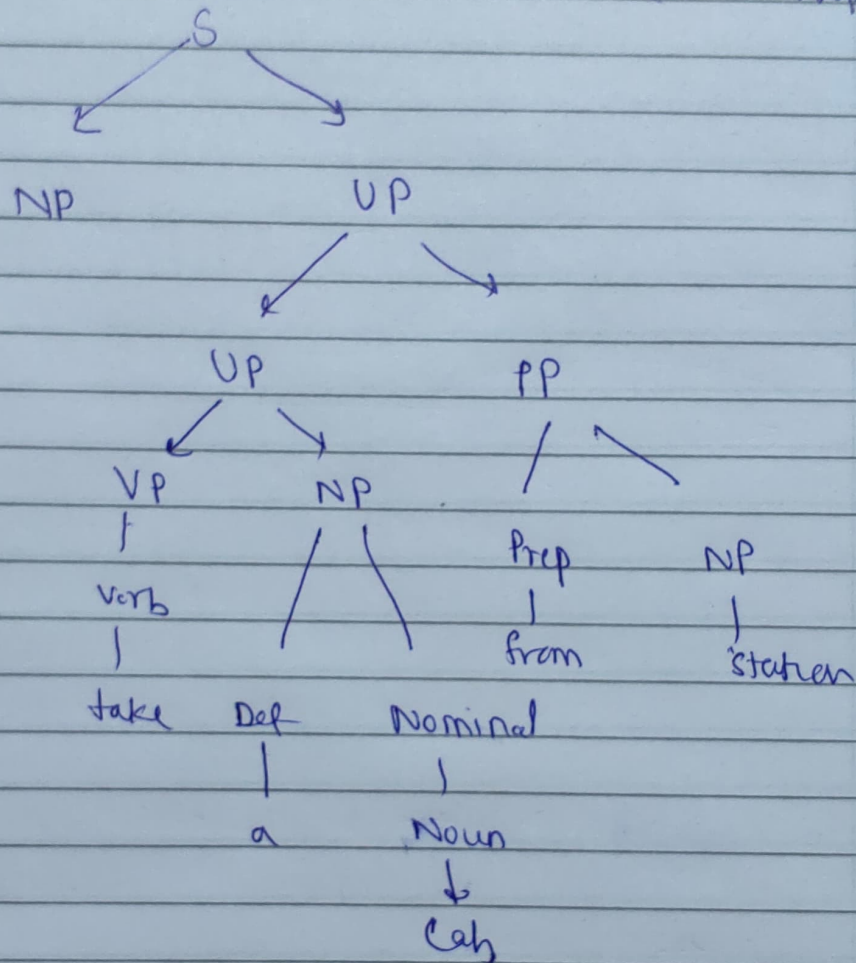 S
NP VP
VP PP
VP NP
Prep NP
Verb
from station
take Det Nominal
a Noun
Cab